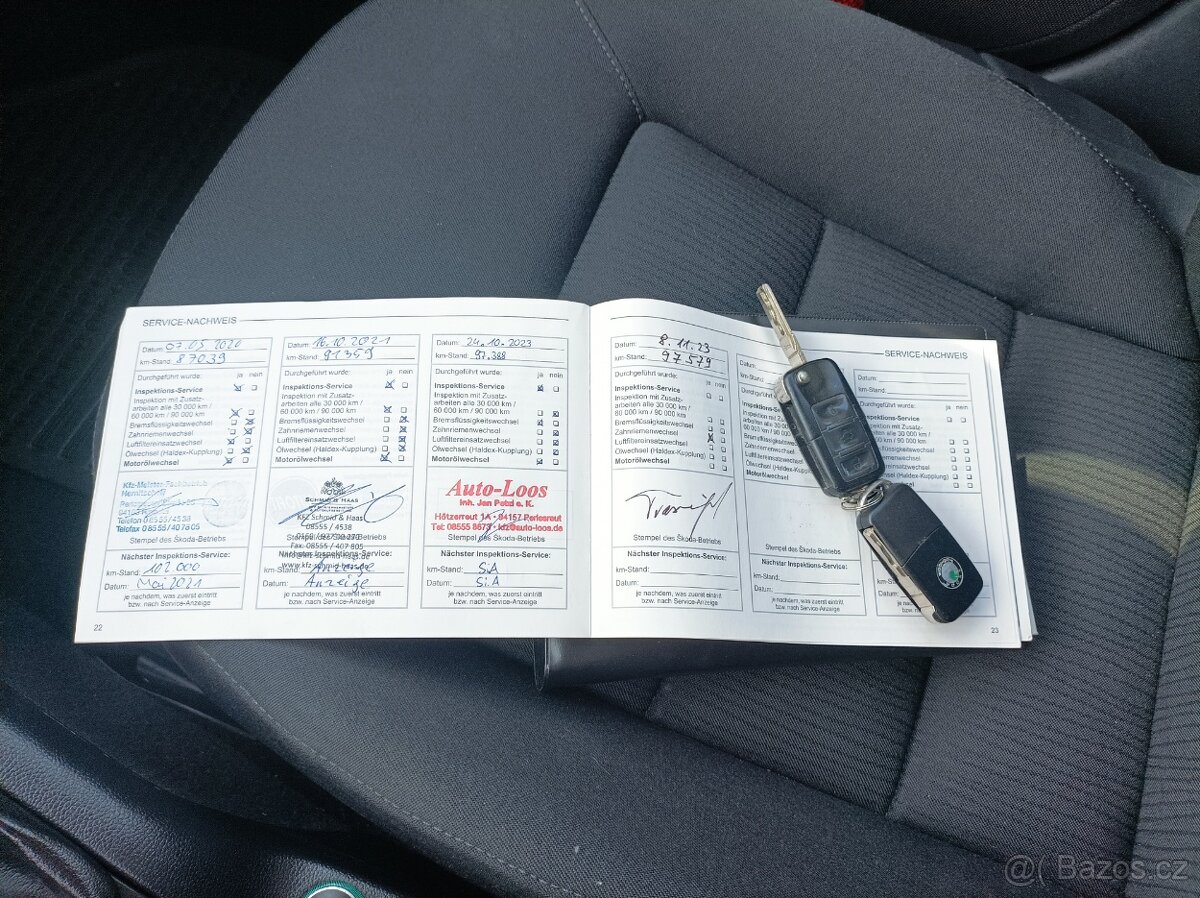 SERVICE-NACHWEIS
Datum: 07.05.2020
km-Stand: 87039
Durchgeführt wurde: ja nein
Inspektions-Service
Inspektion mit Zusatz-
arbeiten alle 30 000 km /
60 000 km / 90 000 km
Bremsflüssigkeitswechsel
Zahnriemenwechsel
Luftfiltereinsatzwechsel
Ölwechsel (Haldex-Kupplung)
Motorölwechsel
Kfz-Meister-Fachbetrieb
Telefon 08555/4538
Telefax 08555/407805
Stempel des Škoda-Betriebs
Nächster Inspektions-Service:
km-Stand: 102 000
Datum: Mai 2021
je nachdem, was zuerst eintritt
bzw. nach Service-Anzeige
22
Datum: 16.10.2021
km-Stand: 91359
Durchgeführt wurde: ja nein
Inspektions-Service
Inspektion mit Zusatz-
arbeiten alle 30 000 km /
60 000 km / 90 000 km
Bremsflüssigkeitswechsel
Zahnriemenwechsel
Luftfiltereinsatzwechsel
Ölwechsel (Haldex-Kupplung)
Motorölwechsel
SCHMID & HAAS
KFZ Schmid & Haas
08555 / 4538
Stempel des Škoda-Betriebs
Fax: 08555 / 407 805
Nächster Inspektions-Service:
km-Stand: Anzeige
Datum: Anzeige
je nachdem, was zuerst eintritt
bzw. nach Service-Anzeige
Datum: 24.10.2023
km-Stand: 97.388
Durchgeführt wurde: ja nein
Inspektions-Service
Inspektion mit Zusatz-
arbeiten alle 30 000 km /
60 000 km / 90 000 km
Bremsflüssigkeitswechsel
Zahnriemenwechsel
Luftfiltereinsatzwechsel
Ölwechsel (Haldex-Kupplung)
Motorölwechsel
Auto-Loos
Inh. Jan Petzl e. K.
Hötzerreut 1A · 94157 Perlesreut
Tel: 08555 8873 · kfz@auto-loos.de
Stempel des Škoda-Betriebs
Nächster Inspektions-Service:
km-Stand: S.A
Datum: S.A
je nachdem, was zuerst eintritt
bzw. nach Service-Anzeige
Datum: 8.11.23
km-Stand: 97579
Durchgeführt wurde: ja nein
Inspektions-Service
Inspektion mit Zusatz-
arbeiten alle 30 000 km /
60 000 km / 90 000 km
Bremsflüssigkeitswechsel
Zahnriemenwechsel
Luftfiltereinsatzwechsel
Ölwechsel (Haldex-Kupplung)
Motorölwechsel
Stempel des Škoda-Betriebs
Nächster Inspektions-Service:
km-Stand:
Datum:
je nachdem, was zuerst eintritt
bzw. nach Service-Anzeige
Datum:
km-Stand:
Stempel des Škoda-Betriebs
Nächster Inspektions-Service:
km-Stand:
Datum:
je nachdem, was zuerst eintritt
bzw. nach Service-Anzeige
SERVICE-NACHWEIS
Datum:
km-Stand:
Durchgeführt wurde:
ja nein
23
Bazos.cz